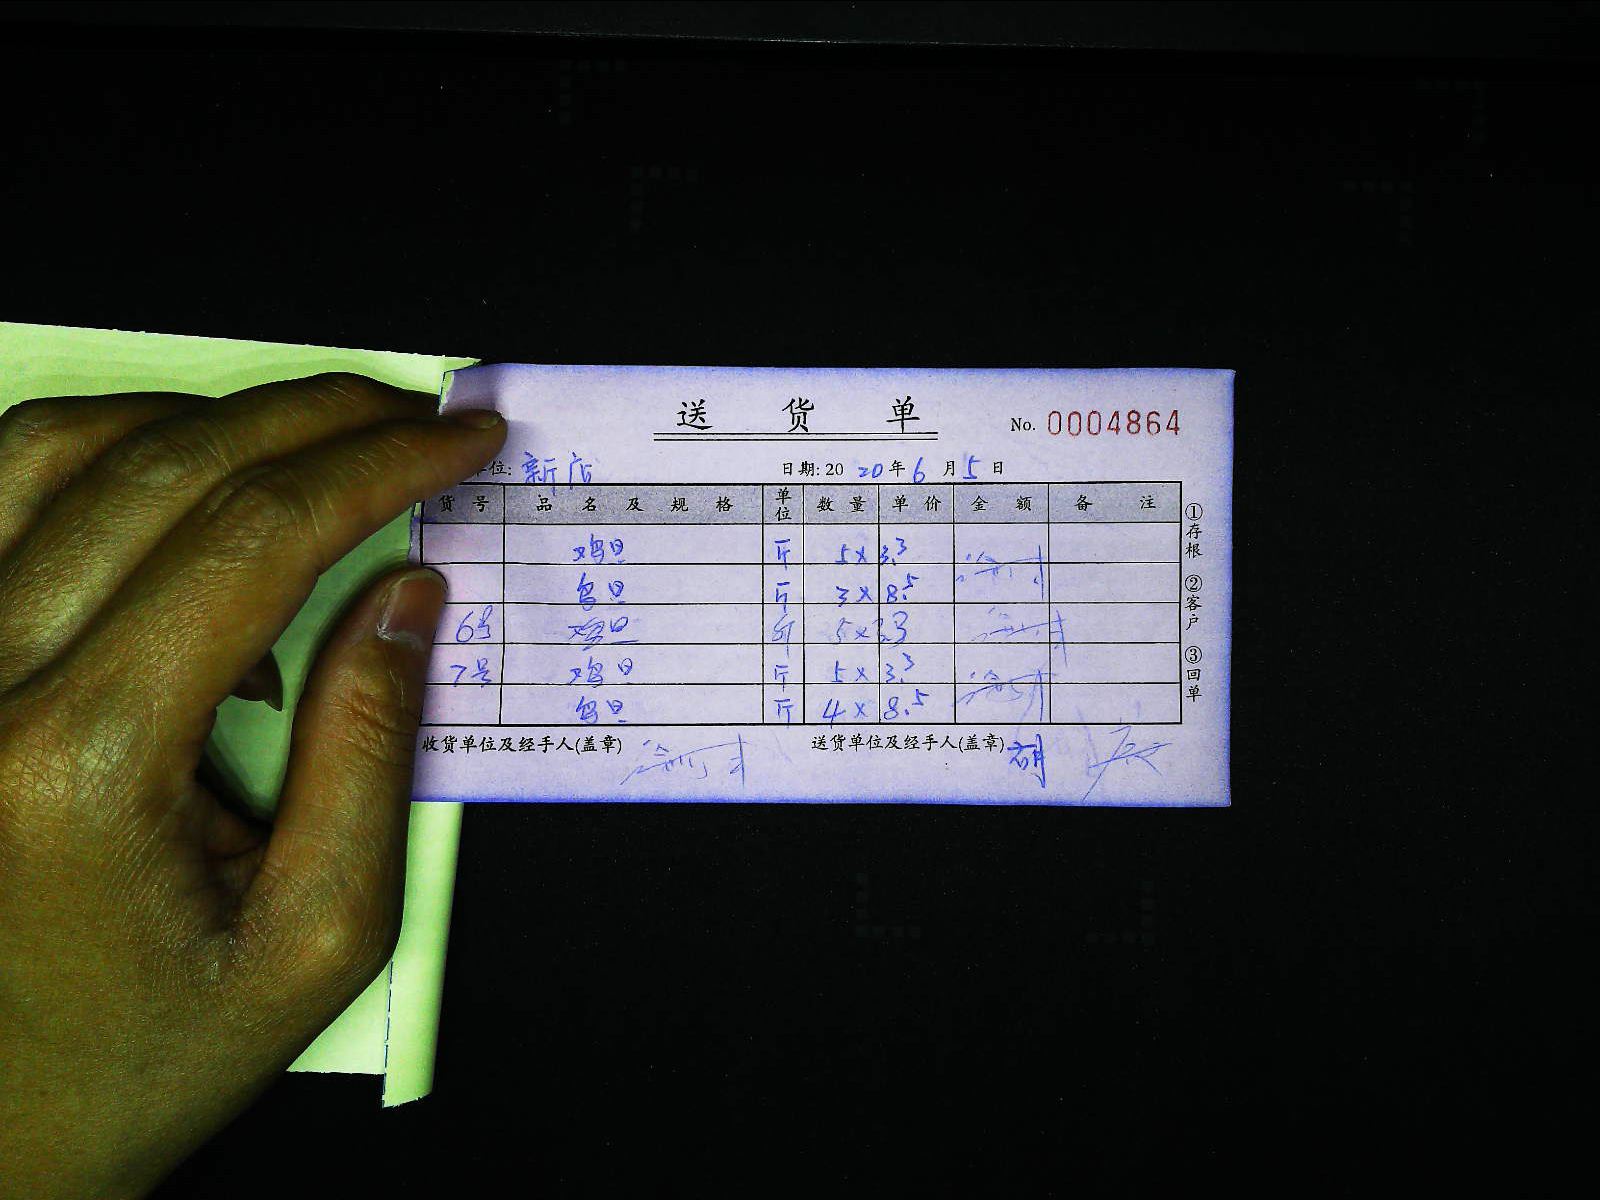 送 货 单
No. 0004864
单位: 新店 日期: 2020年6月5日
货号 品名及规格 单位 数量 单价 金额 备注
鸡旦 斤 5 × 3.3
鸟旦 斤 3 × 8.5
6号 鸡旦 斤 5 × 3.3
7号 鸡旦 斤 5 × 3.3
鸟旦 斤 4 × 8.5
收货单位及经手人(盖章) 送货单位及经手人(盖章) 胡
①存根 ②客户 ③回单